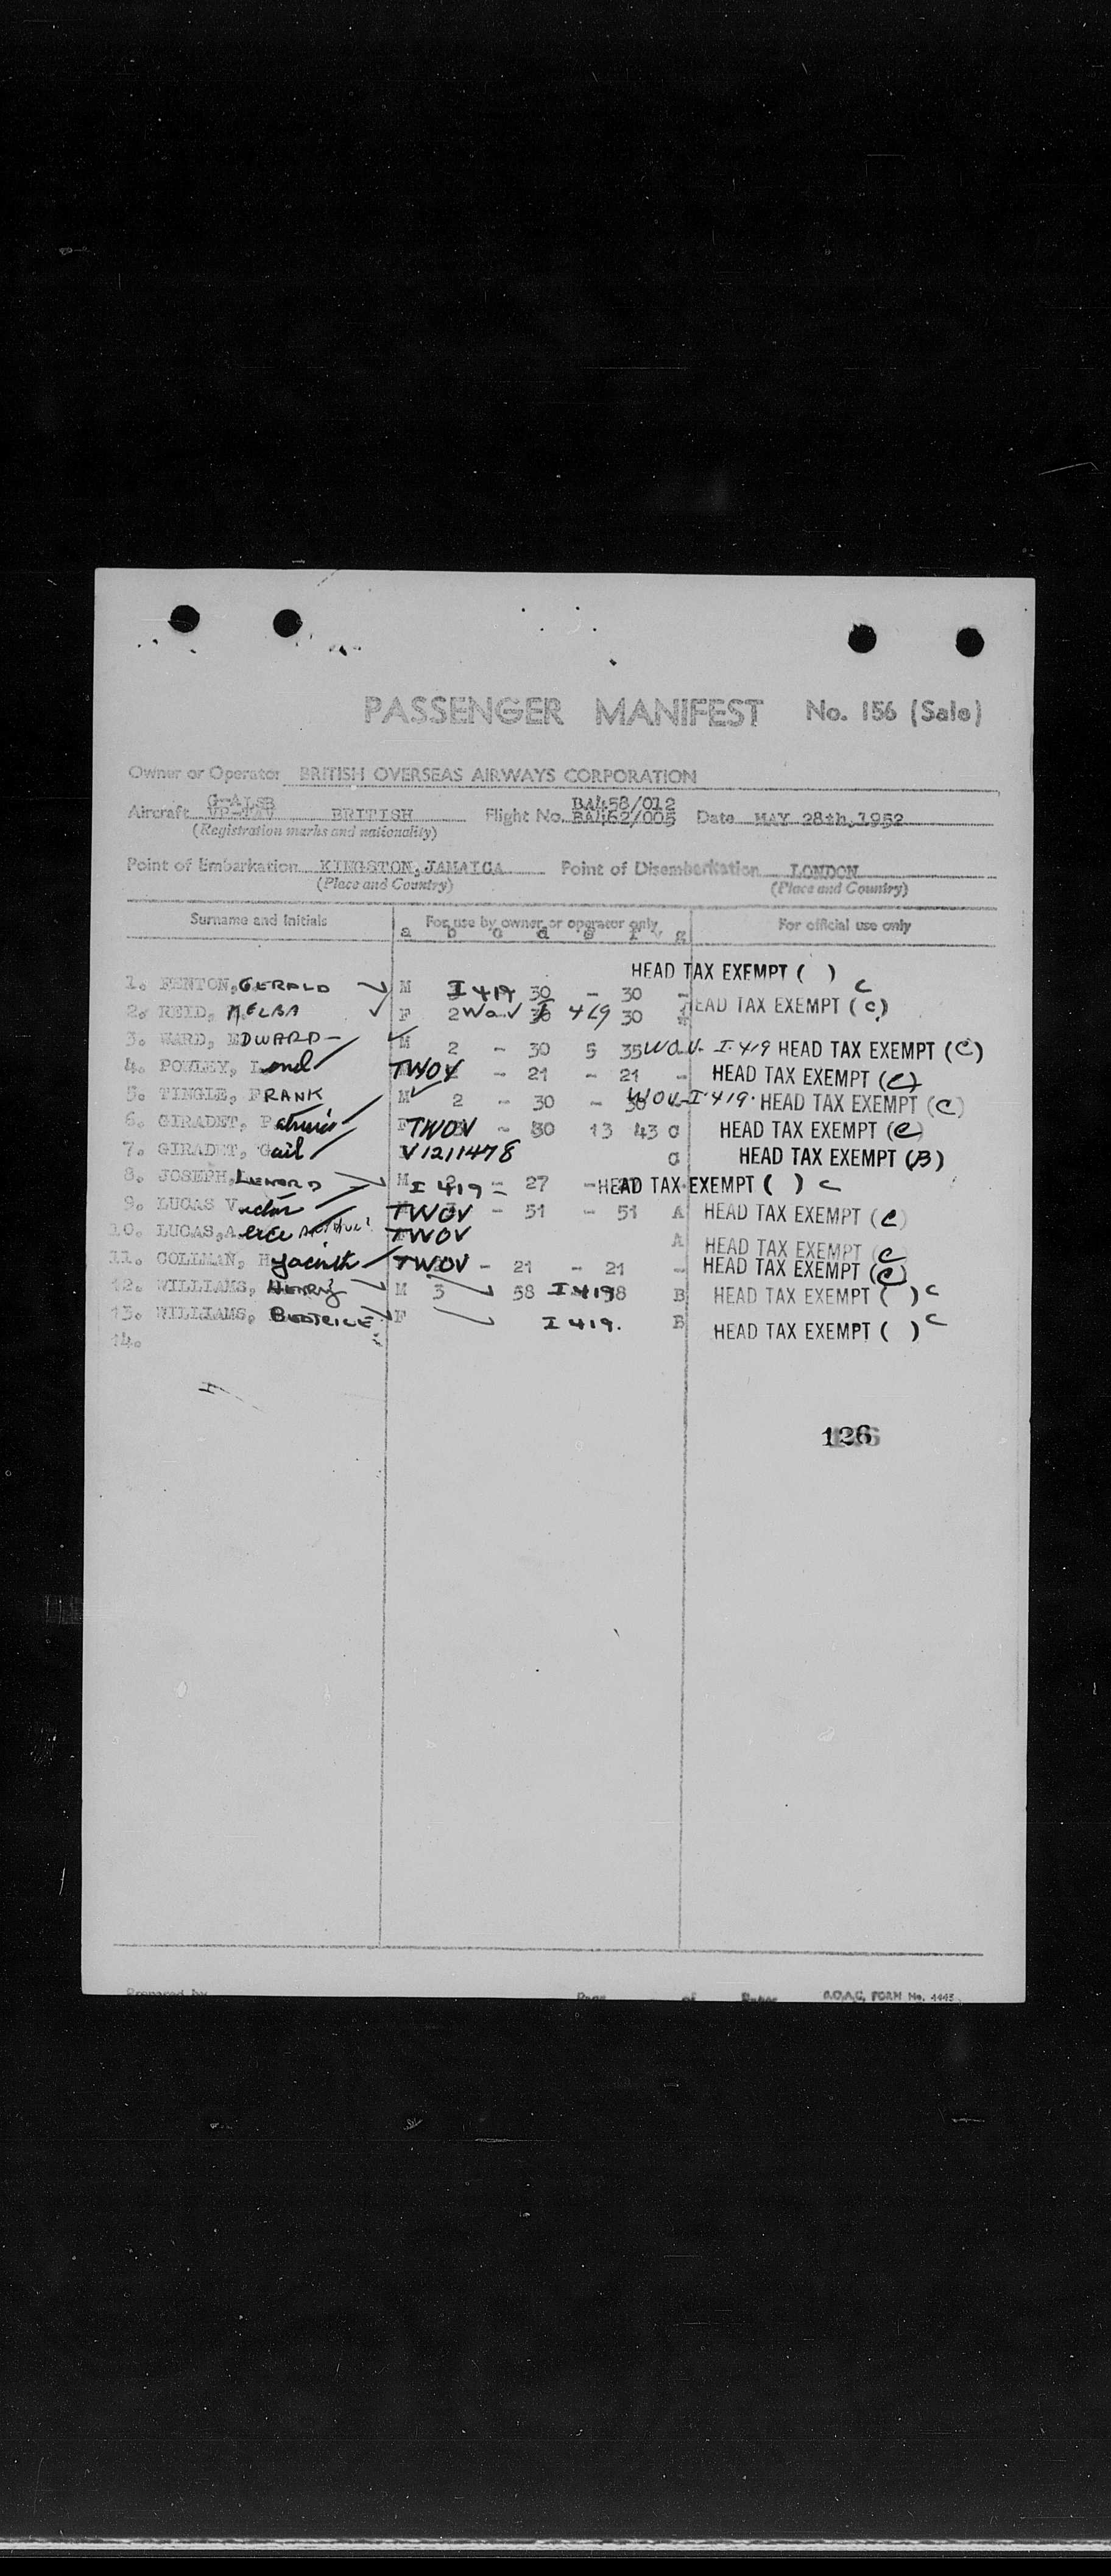 PASSENGER MANIFEST No. 156 (Sale)
Owner or Operator BRITISH OVERSEAS AIRWAYS CORPORATION
G-ALSB BA458/012
Aircraft VP-TAV BRITISH Flight No. BA462/005 Date MAY 28th, 1952
(Registration marks and nationality)
Point of Embarkation KINGSTON, JAMAICA Point of Disembarkation LONDON
(Place and Country) (Place and Country)
Surname and Initials For use by owner or operator only For official use only
a b c d e f g
HEAD TAX EXEMPT ( ) C
1. FENTON, GERALD M I 419 30 - 30 -
2. REID, MELBA F 2 WOV I 419 30 HEAD TAX EXEMPT (C)
3. WARD, EDWARD M 2 - 30 5 35 WOV. I.419 HEAD TAX EXEMPT (C)
4. POWLEY, TWOV - 21 - 21 - HEAD TAX EXEMPT (C)
5. TINGLE, FRANK M 2 - 30 - WOV-I.419. HEAD TAX EXEMPT (C)
6. GIRADET, Patricia F TWOV - 30 13 43 C HEAD TAX EXEMPT (C)
7. GIRADET, Gail V1211478 C HEAD TAX EXEMPT (B)
8. JOSEPH, M I 419 - 27 - HEAD TAX EXEMPT ( ) C
9. LUCAS Victor TWOV - 51 - 51 A HEAD TAX EXEMPT (C)
10. LUCAS, TWOV A HEAD TAX EXEMPT (C
11. COLLMAN, Hyacinth TWOV - 21 - 21 - HEAD TAX EXEMPT (C)
12. WILLIAMS, HENRY M 3 58 I 419 8 B HEAD TAX EXEMPT ( ) C
13. WILLIAMS, BEATRICE F I 419. B HEAD TAX EXEMPT ( ) C
14.
126
Prepared by Page of Pages B.O.A.C. FORM No. 4445